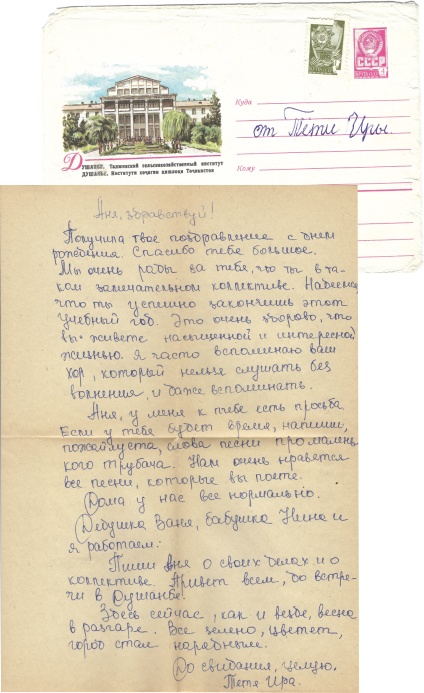 СССР
Куда
от Тёти Иры.
Кому
ДУШАНБЕ. Таджикский сельскохозяйственный институт
ДУШАНБЕ. Институти хочагии кишлоки Точикистон
Аня, здравствуй!
Получила твое поздравление с днем
рождения. Спасибо тебе большое.
Мы очень рады за тебя, что ты в та-
ком замечательном коллективе. Надеемся,
что ты успешно закончишь этот
учебный год. Это очень здорово, что
вы живете насыщенной и интересной
жизнью. Я часто вспоминаю ваш
хор, который нельзя слушать без
волнения, и даже вспоминать.
Аня, у меня к тебе есть просьба.
Если у тебя будет время, напиши,
пожалуйста, слова песни про малень-
кого трубача. Нам очень нравятся
все песни, которые вы поете.
Дома у нас все нормально.
Дедушка Ваня, бабушка Нина и
я работаем.
Пиши Аня о своих делах и о
коллективе. Привет всем, до встре-
чи в Душанбе!
Здесь сейчас, как и везде, весна
в разгаре. Все зелено, цветет,
город стал нарядным.
До свидания, целую.
Тетя Ира.